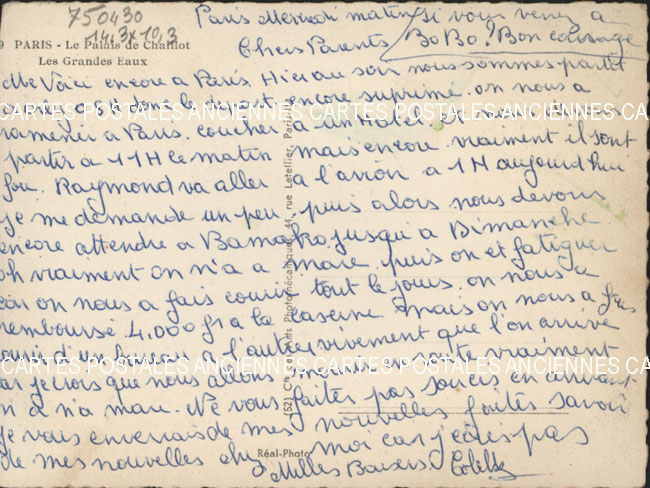 750430
14,3x10,3
Paris Mercredi matin si vous venez a
9 PARIS - Le Palais de Chaillot
Les Grandes Eaux
Chers Parents BoBo! Bon courage
Me Voici encore a Paris, Hier au soir nous sommes partit
encore suprimé. on nous a
CARTES POSTALES ANCIENNES CARTES POSTALES ANCIENNES CARTES POSTALES ANCIENNES
ramener a Paris. coucher a un Hotel.
partir a 11H ce matin mais encore vraiment il sont
fou. Raymond va aller a l'avion a 1H aujourd'hui
je me demande un peu. puis alors nous devons
encore attendre a Bamako jusqu'a Dimanche
oh vraiment on n'a a mare puis on et fatiguer
car on nous a fais courir tout le jours. on nous a
remboussé 4.000 fr a la caserne. mais on nous a fais
a l'autre vivement que l'on arrive
CARTES POSTALES ANCIENNES CARTES POSTALES ANCIENNES CARTES POSTALES ANCIENNES
car je crois que nous allons vraiment
on a n'a mare. Ne vous faites pas soucis en arrivant
je vous enverrais de mes nouvelles faites savoir
de mes nouvelles chez moi car j'ecris pas
Réal-Photo
Milles Baisers Colette
(52) Cie des Arts Photomécaniques, 44, rue Letellier, Paris